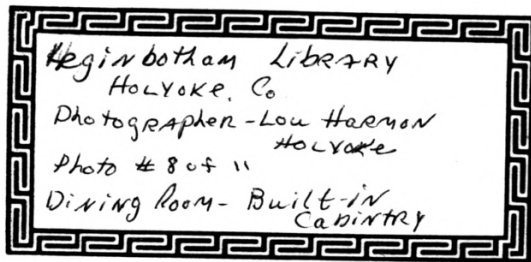 Heginbotham Library
Holyoke, Co
Photographer - Lou Harmon
Holyoke
Photo # 8 of 11
Dining Room - Built-in
Cabintry